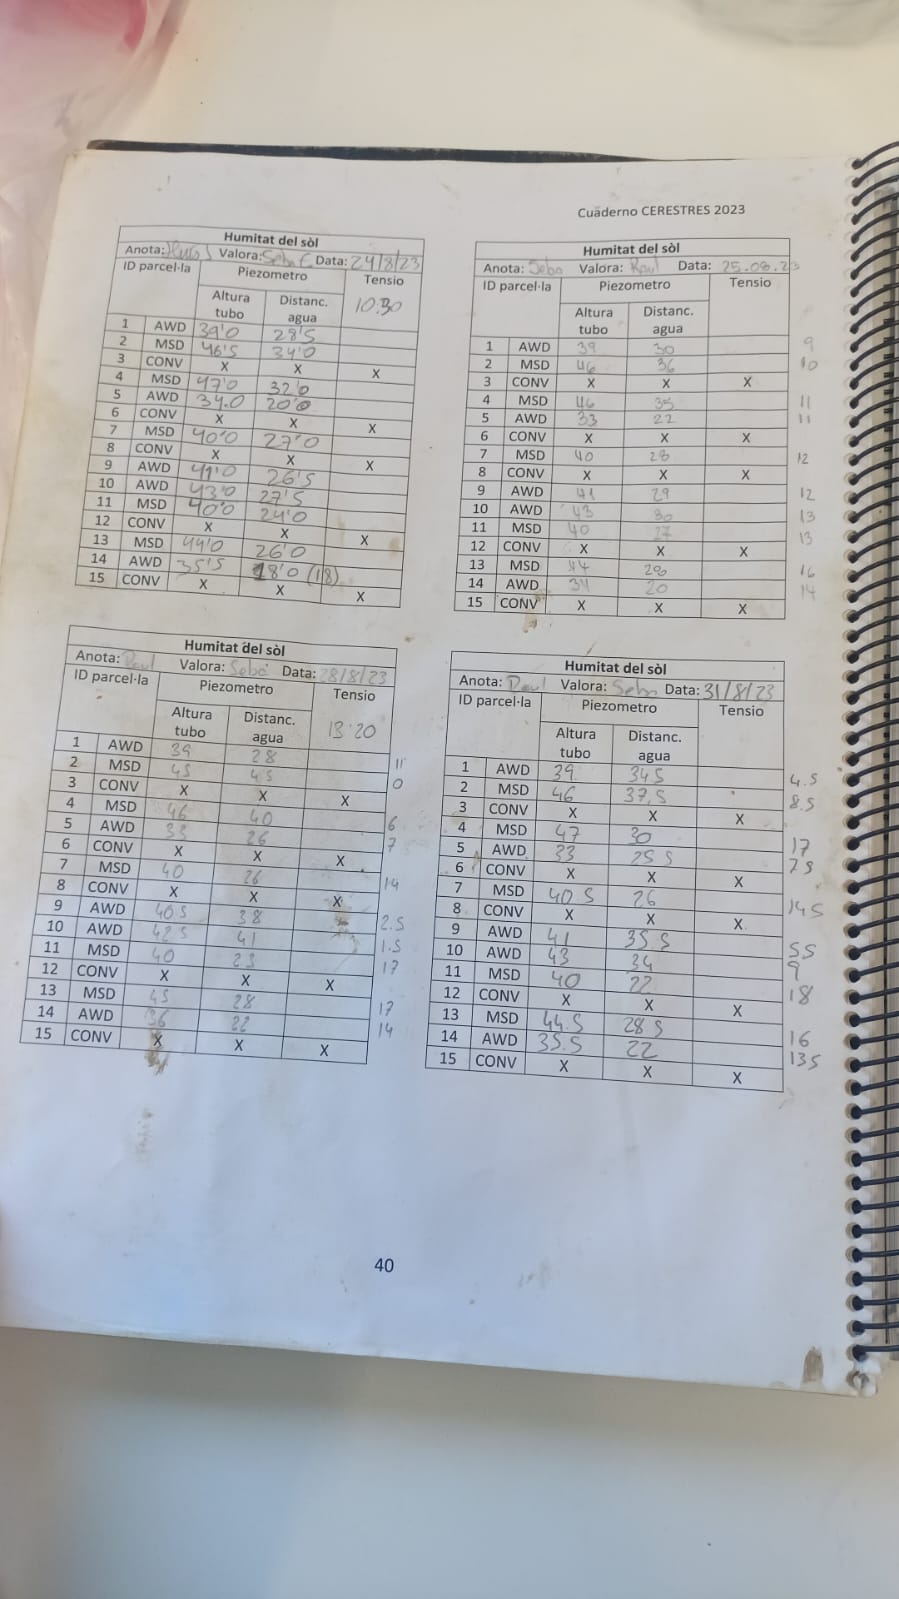 Cuaderno CERESTRES 2023
Humitat del sòl
Anota: Valora: Seba E Data: 24/8/23
ID parcel·la Piezometro Tensio
Altura tubo Distanc. agua 10:30
1 AWD 39'0 28'5
2 MSD 46'5 34'0
3 CONV X X X
4 MSD 47'0 32'0
5 AWD 34.0 20'0
6 CONV X X X
7 MSD 40'0 27'0
8 CONV X X X
9 AWD 41'0 26'5
10 AWD 43'0 27'5
11 MSD 40'0 24'0
12 CONV X X X
13 MSD 44'0 26'0
14 AWD 35'5 18'0 (18)
15 CONV X X X
Humitat del sòl
Anota: Seba Valora: Raul Data: 25.08.23
ID parcel·la Piezometro Tensio
Altura tubo Distanc. agua
1 AWD 39 30 9
2 MSD 46 36 10
3 CONV X X X
4 MSD 46 35 11
5 AWD 33 22 11
6 CONV X X X
7 MSD 40 28 12
8 CONV X X X
9 AWD 41 29 12
10 AWD 43 30 13
11 MSD 40 27 13
12 CONV X X X
13 MSD 44 28 16
14 AWD 34 20 14
15 CONV X X X
Humitat del sòl
Anota: Raul Valora: Seba Data: 28/8/23
ID parcel·la Piezometro Tensio
Altura tubo Distanc. agua 13:20
1 AWD 39 28 11
2 MSD 45 45 0
3 CONV X X X
4 MSD 46 40 6
5 AWD 33 26 7
6 CONV X X X
7 MSD 40 26 14
8 CONV X X X
9 AWD 40.5 38 2.5
10 AWD 42.5 41 1.5
11 MSD 40 23 17
12 CONV X X X
13 MSD 45 28 17
14 AWD 36 22 14
15 CONV X X X
Humitat del sòl
Anota: Raul Valora: Seba Data: 31/8/23
ID parcel·la Piezometro Tensio
Altura tubo Distanc. agua
1 AWD 39 34.5 4.5
2 MSD 46 37.5 8.5
3 CONV X X X
4 MSD 47 30 17
5 AWD 33 25.5 7.5
6 CONV X X X
7 MSD 40.5 26 14.5
8 CONV X X X
9 AWD 41 35.5 5.5
10 AWD 43 34 9
11 MSD 40 22 18
12 CONV X X X
13 MSD 44.5 28.5 16
14 AWD 35.5 22 13.5
15 CONV X X X
40